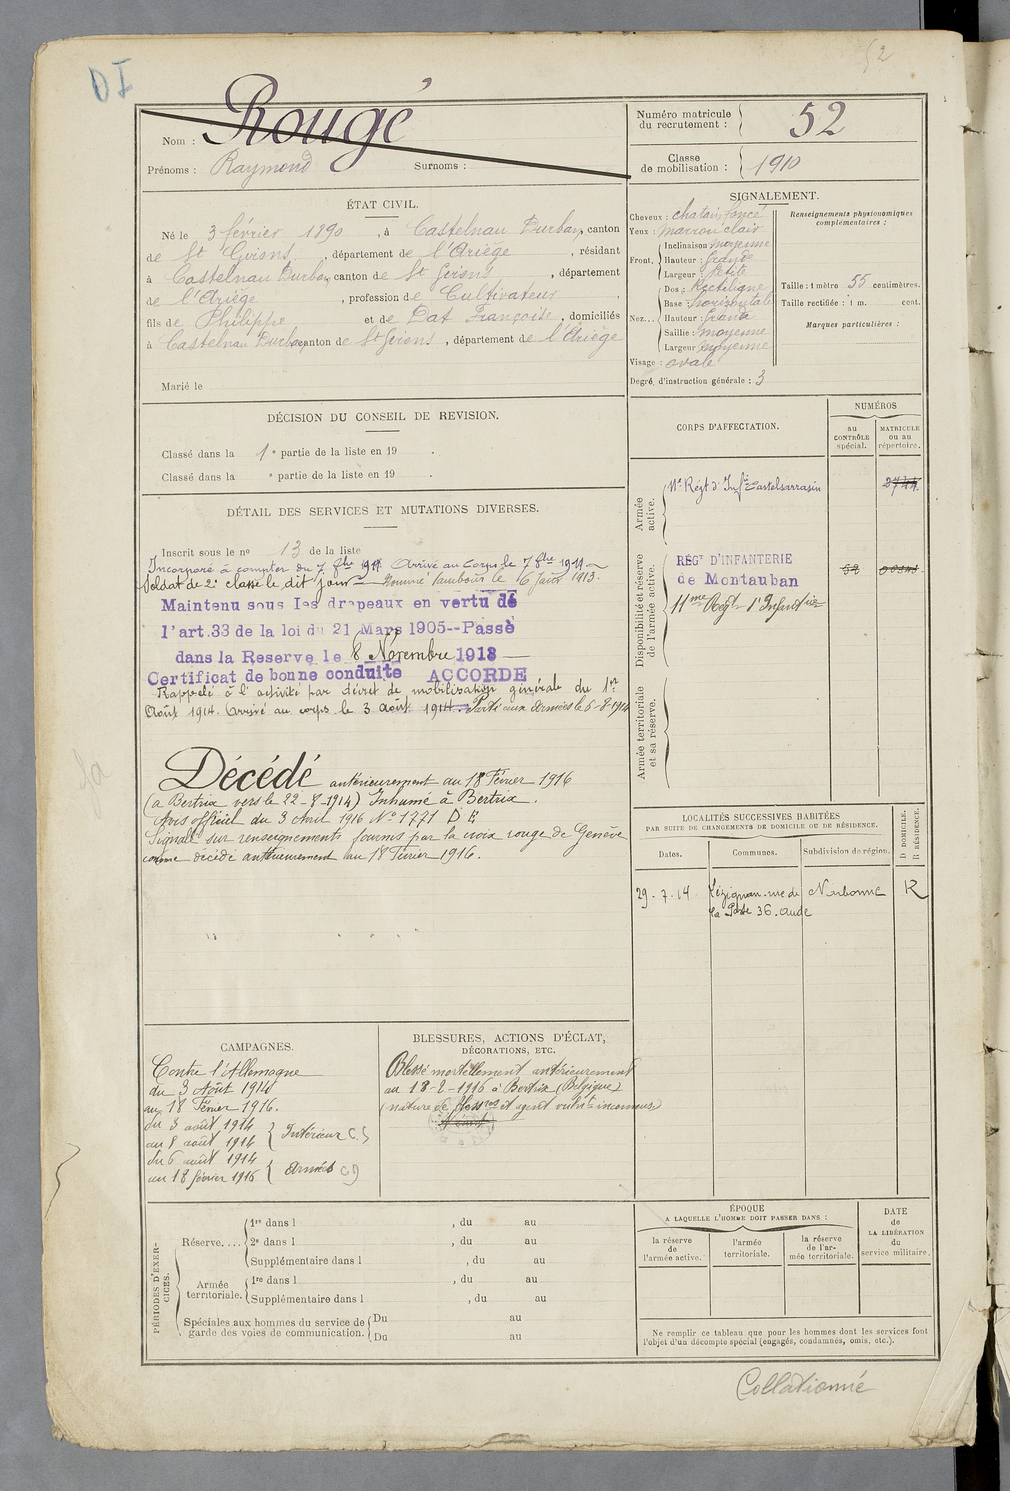 52
DI
Nom : Rougé
Prénoms : Raymond Surnoms :
Numéro matricule du recrutement : 52
Classe de mobilisation : 1910
ÉTAT CIVIL.
Né le 3 février 1890, à Castelnau Durban, canton
de St Girons, département de l'Ariège, résidant
à Castelnau Durban, canton de St Girons, département
de l'Ariège, profession de Cultivateur,
fils de Philippe et de Dat Françoise, domiciliés
à Castelnau Durban, canton de St Girons, département de l'Ariège
Marié le
SIGNALEMENT.
Cheveux : chatain foncé
Yeux : marron clair
Front. Inclinaison moyenne
Hauteur : grande
Largeur : petite
Nez... Dos : Rectiligne
Base : horizontale
Hauteur : grande
Saillie : moyenne
Largeur moyenne
Visage : ovale
Degré, d'instruction générale : 3
Renseignements physionomiques complémentaires :
Taille : 1 mètre 55 centimètres.
Taille rectifiée : 1 m. cent.
Marques particulières :
DÉCISION DU CONSEIL DE REVISION.
Classé dans la 1e partie de la liste en 19 .
Classé dans la e partie de la liste en 19 .
DÉTAIL DES SERVICES ET MUTATIONS DIVERSES.
Inscrit sous le no 13 de la liste
Incorporé à compter du 7 8bre 1911 Arrivé au Corps le 7 8bre 1911
Soldat de 2e classe le dit jour Nommé Tambour le 16 janv 1913.
Maintenu sous les drapeaux en vertu de
l'art.33 de la loi du 21 Mars 1905--Passé
dans la Reserve le 8 Novembre 1913
Certificat de bonne conduite ACCORDE
Rappelé à l'activité par décret de mobilisation générale du 1er
Août 1914. Arrivé au corps le 3 août 1914. Parti aux armées le 6-8-1914
Décédé antérieurement au 18 Février 1916
(à Bertrix vers le 22-8-1914) Inhumé à Bertrix.
Avis officiel du 3 Avril 1916 No 1771 D E
Signalé sur renseignements fournis par la croix rouge de Genève
comme décédé antérieurement au 18 Février 1916.
CORPS D'AFFECTATION.
NUMÉROS
au CONTRÔLE spécial.
MATRICULE ou au répertoire.
Armée active.
11e Régt d'Infie Castelsarrasin 2744
Disponibilité et réserve de l'armée active.
RÉGt D'INFANTERIE
de Montauban
52
11me Régt d'Infanterie
Armée territoriale et sa réserve.
LOCALITÉS SUCCESSIVES HABITÉES
PAR SUITE DE CHANGEMENTS DE DOMICILE OU DE RÉSIDENCE.
Dates. Communes. Subdivision de région. D DOMICILE. R RÉSIDENCE.
29-7-14 Lézignan. rue de Narbonne R
la Poste 36. Aude
CAMPAGNES.
Contre l'Allemagne
du 3 Août 1914
au 18 Février 1916.
du 3 août 1914
au 8 août 1914 } Intérieur CS
du 6 août 1914
au 18 février 1916 } Armées CD
BLESSURES, ACTIONS D'ÉCLAT, DÉCORATIONS, ETC.
Blessé mortellement antérieurement
au 18-2-1916 à Bertrix (Belgique)
(nature de bless res et agent vulnt inconnus)
Néant
PÉRIODES D'EXERCICES.
Réserve.... 1re dans l , du au
2e dans l , du au
Supplémentaire dans l , du au
Armée territoriale. 1re dans l , du au
Supplémentaire dans l , du au
Spéciales aux hommes du service de garde des voies de communication. Du au
Du au
ÉPOQUE
A LAQUELLE L'HOMME DOIT PASSER DANS :
la réserve de l'armée active.
l'armée territoriale.
la réserve de l'armée territoriale.
DATE de LA LIBÉRATION du service militaire.
Ne remplir ce tableau que pour les hommes dont les services font
l'objet d'un décompte spécial (engagés, condamnés, omis, etc.).
Collationné